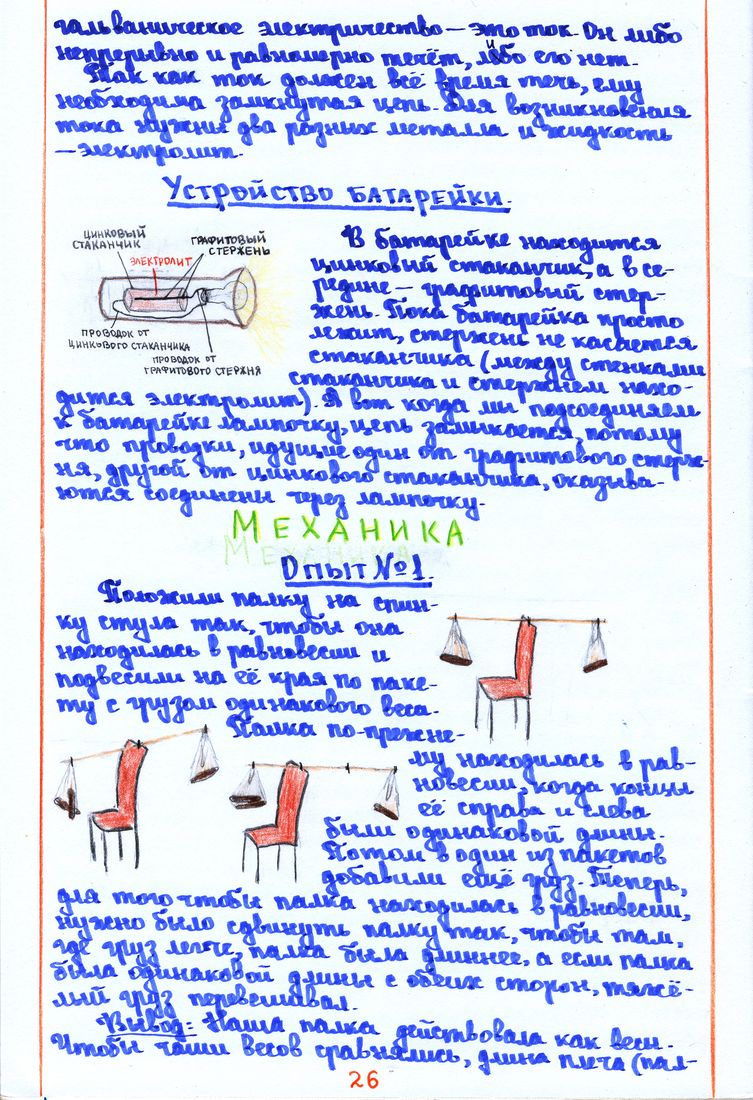 гальваническое электричество – это ток. Он либо
непрерывно и равномерно течёт, либо его нет.
Так как ток должен всё время течь, ему
необходима замкнутая цепь. Для возникновения
тока нужны два разных металла и жидкость
– электролит.
УСТРОЙСТВО БАТАРЕЙКИ.
ЦИНКОВЫЙ
СТАКАНЧИК
ГРАФИТОВЫЙ
СТЕРЖЕНЬ
ЭЛЕКТРОЛИТ
ПРОВОДОК ОТ
ЦИНКОВОГО СТАКАНЧИКА
ПРОВОДОК ОТ
ГРАФИТОВОГО СТЕРЖНЯ
В батарейке находится
цинковый стаканчик, а в се-
редине – графитовый стер-
жень. Пока батарейка просто
лежит, стержень не касается
стаканчика (между стенками
стаканчика и стержнем нахо-
дится электролит). А вот когда мы подсоединяем
к батарейке лампочку, цепь замыкается, потому
что проводки, идущие один от графитового стерж-
ня, другой от цинкового стаканчика, оказыва-
ются соединены через лампочку.
МЕХАНИКА
ОПЫТ №1.
Положили палку на спин-
ку стула так, чтобы она
находилась в равновесии и
подвесили на её края по паке-
ту с грузом одинакового веса.
Палка по-прежне-
му находилась в рав-
новесии, когда концы
её справа и слева
были одинаковой длины.
Потом в один из пакетов
добавили ещё груз. Теперь,
для того чтобы палка находилась в равновесии,
нужно было сдвинуть палку так, чтобы там,
где груз легче, палка была длиннее, а если палка
была одинаковой длины с обеих сторон, тяжё-
лый груз перевешивал.
Вывод: Наша палка действовала как весы.
Чтобы чаши весов сравнялись, длина плеча (пал-
26